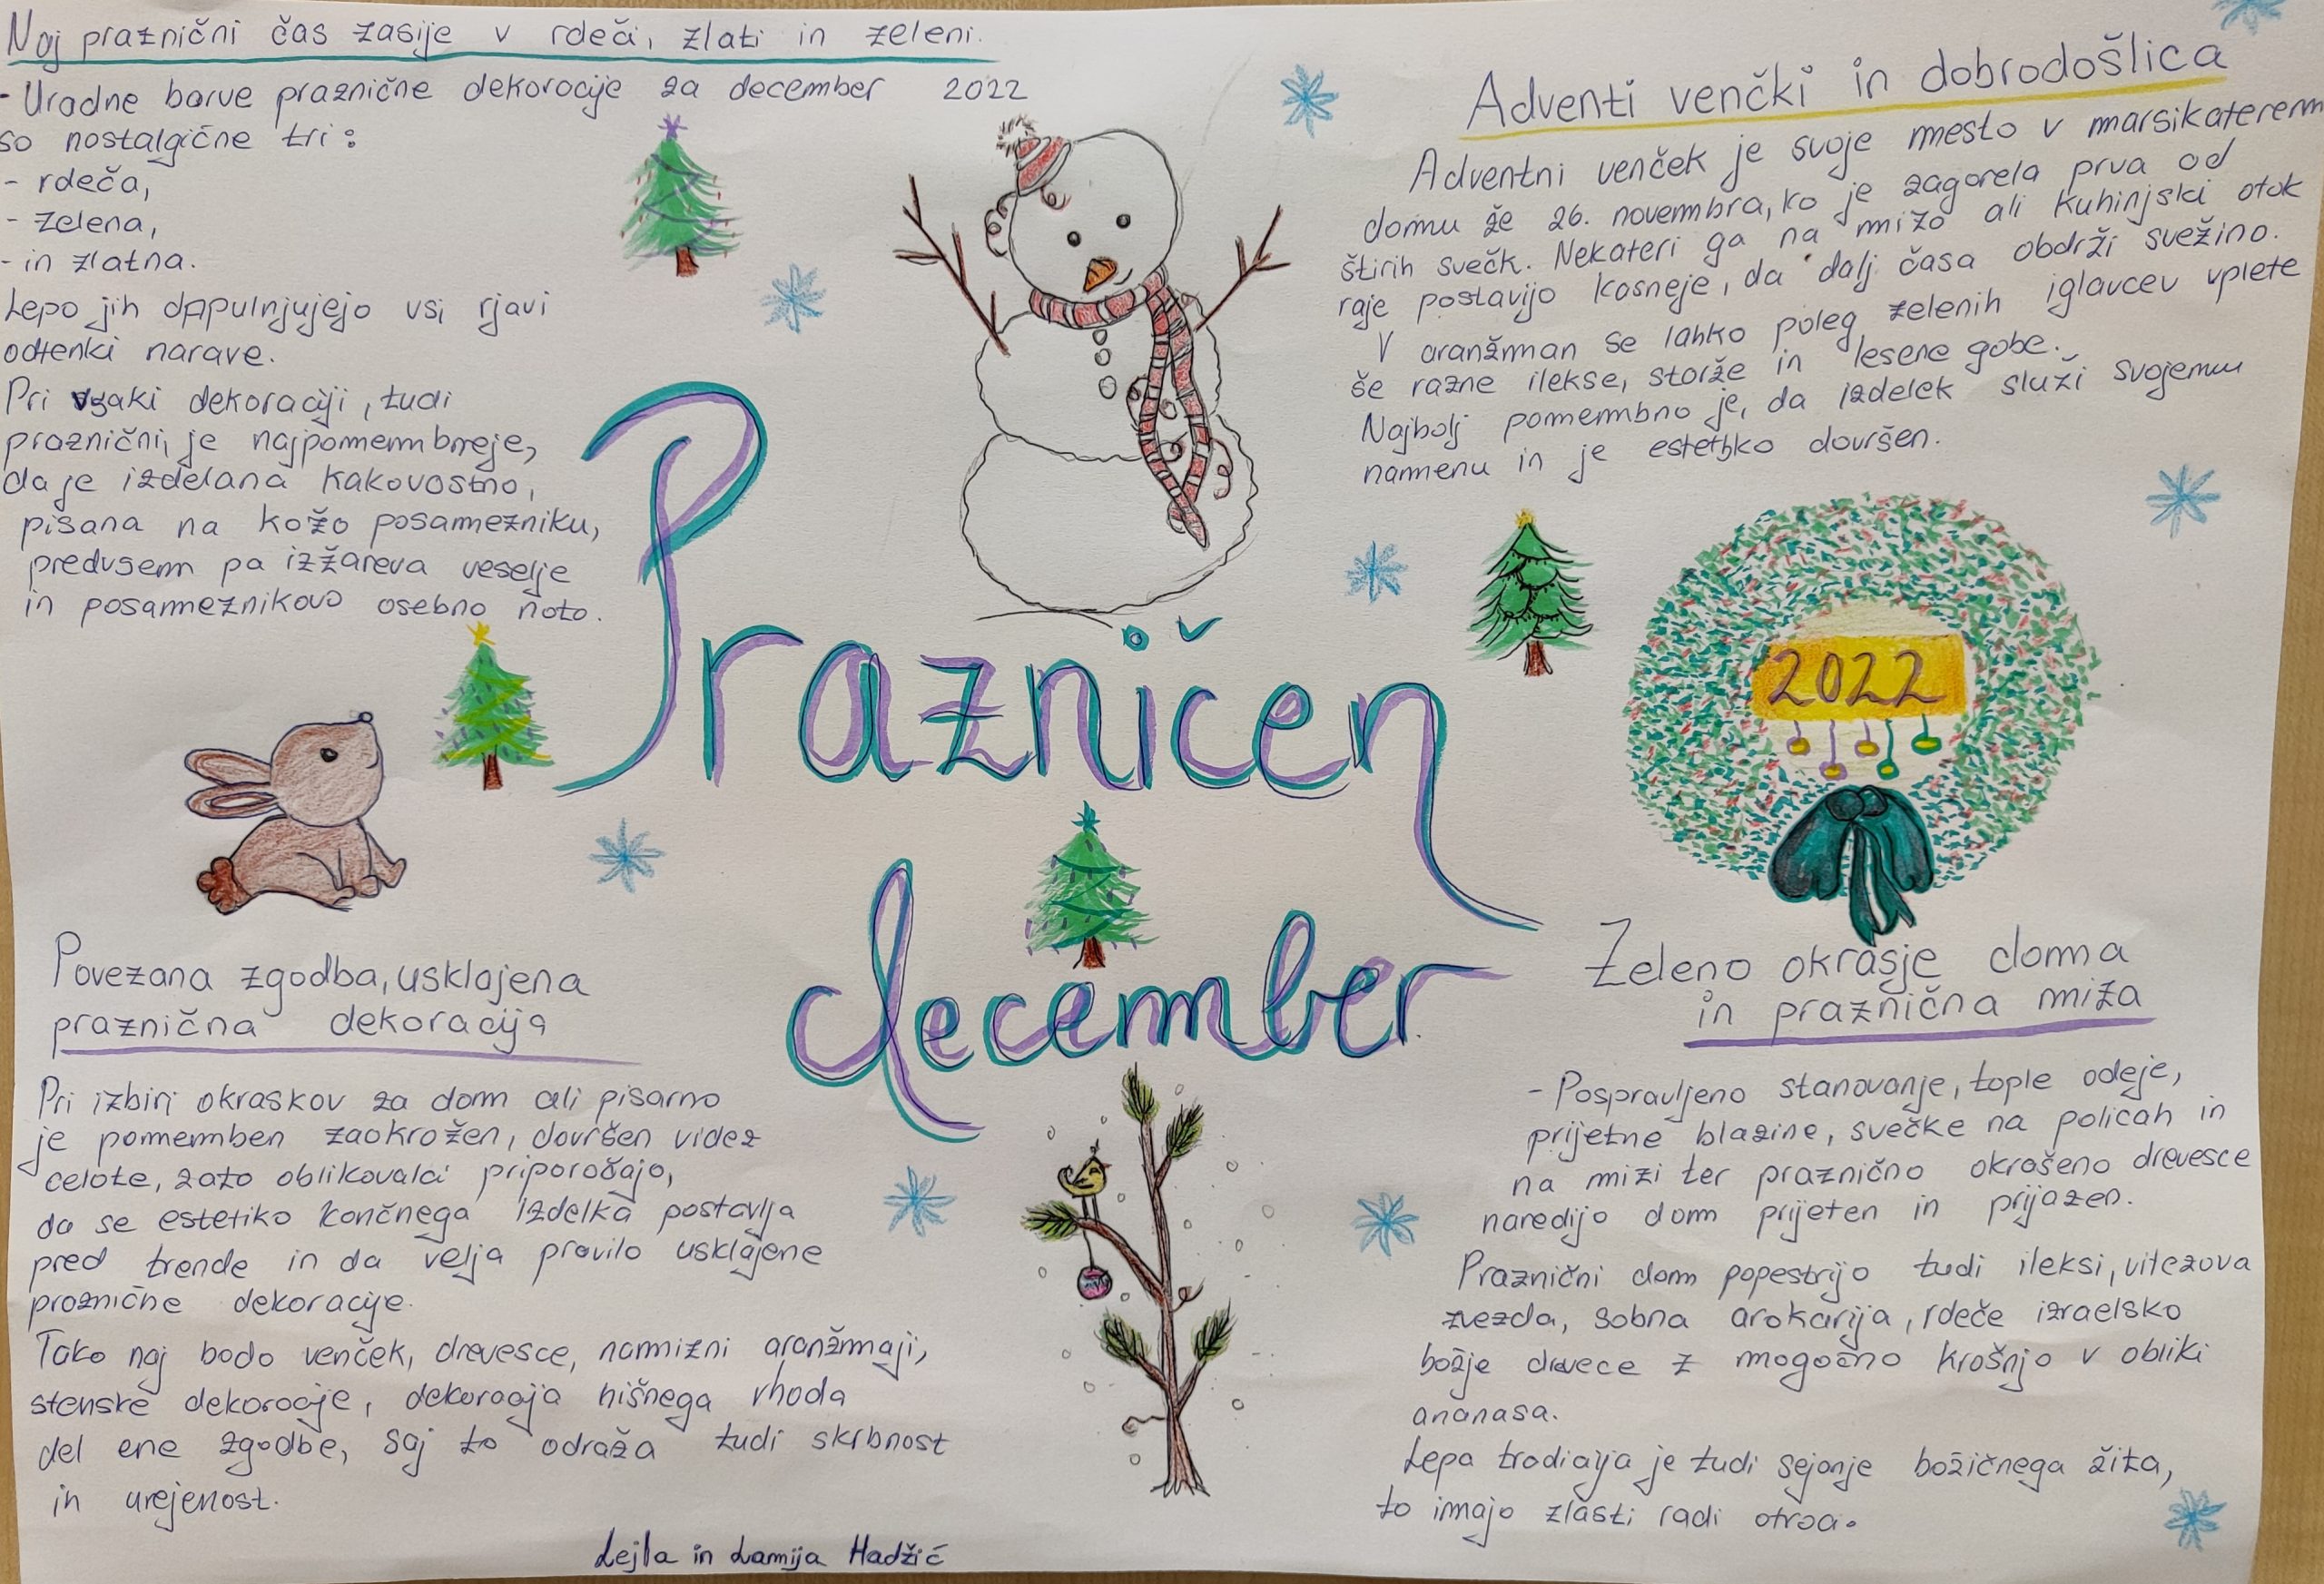 Naj praznični čas zasije v rdeči, zlati in zeleni.
- Uradne barve praznične dekoracije za december 2022
so nostalgične tri:
- rdeča,
- zelena,
- in zlatna.
Lepo jih dopulnjujejo vsi rjavi
odtenki narave.
Pri vsaki dekoraciji, tudi
praznični, je najpomembneje,
da je izdelana kakovostno,
pisana na kožo posamezniku,
predvsem pa izžareva veselje
in posameznikovo osebno noto.
Adventi venčki in dobrodošlica
Adventni venček je svoje mesto v marsikaterem
domu že 26. novembra, ko je zagorela prva od
štirih svečk. Nekateri ga na mizo ali kuhinjski otok
raje postavijo kosneje, da dalj časa obdrži svežino.
V aranžman se lahko poleg zelenih iglavcev vplete
še razne ilekse, storže in lesene gobe.
Najbolj pomembno je, da izdelek služi svojemu
namenu in je estetsko dovršen.
2022
Prazničen
december
Povezana zgodba, usklajena
praznična dekoracija
Pri izbiri okraskov za dom ali pisarno
je pomemben zaokrožen, dovršen videz
celote, zato oblikovalci priporočajo,
da se estetiko končnega izdelka postavlja
pred trende in da velja pravilo usklajene
praznične dekoracije.
Tako naj bodo venček, drevesce, namizni aranžmaji,
stenske dekoracije, dekoracija hišnega vhoda
del ene zgodbe, saj to odraža tudi skrbnost
in urejenost.
Zeleno okrasje doma
in praznična miza
- Pospravljeno stanovanje, tople odeje,
prijetne blazine, svečke na policah in
na mizi ter praznično okrašeno drevesce
naredijo dom prijeten in prijazen.
Praznični dom popestrijo tudi ileksi, vitezova
zvezda, sobna arokarija, rdeče izraelsko
božje drevece z mogočno krošnjo v obliki
ananasa.
Lepa tradicija je tudi sejanje božičnega žita,
to imajo zlasti radi otroci.
Lejla in Lamija Hadžić